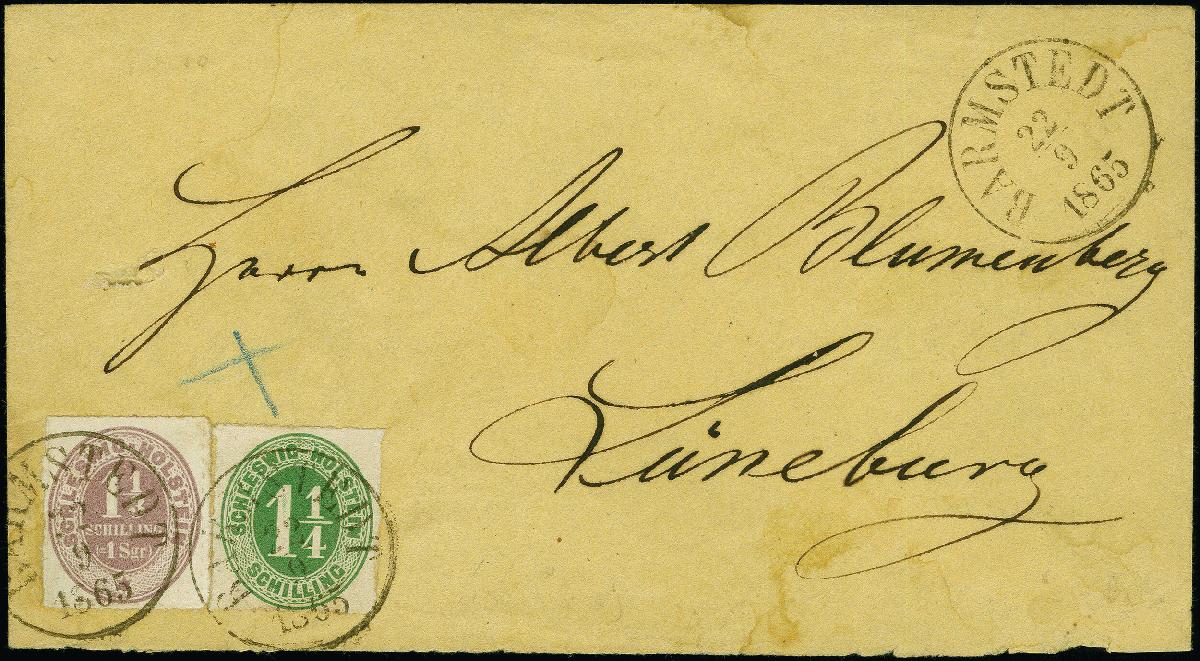 BARMSTEDT
22/9
1865
Herrn Albert Blumenberg
Lüneburg
SCHLESWIG-HOLSTEIN
1¼
SCHILLING
(=1 Sgr)
BARMSTEDT
9
1865
SCHLESWIG-HOLSTEIN
1¼
SCHILLING
9
1865